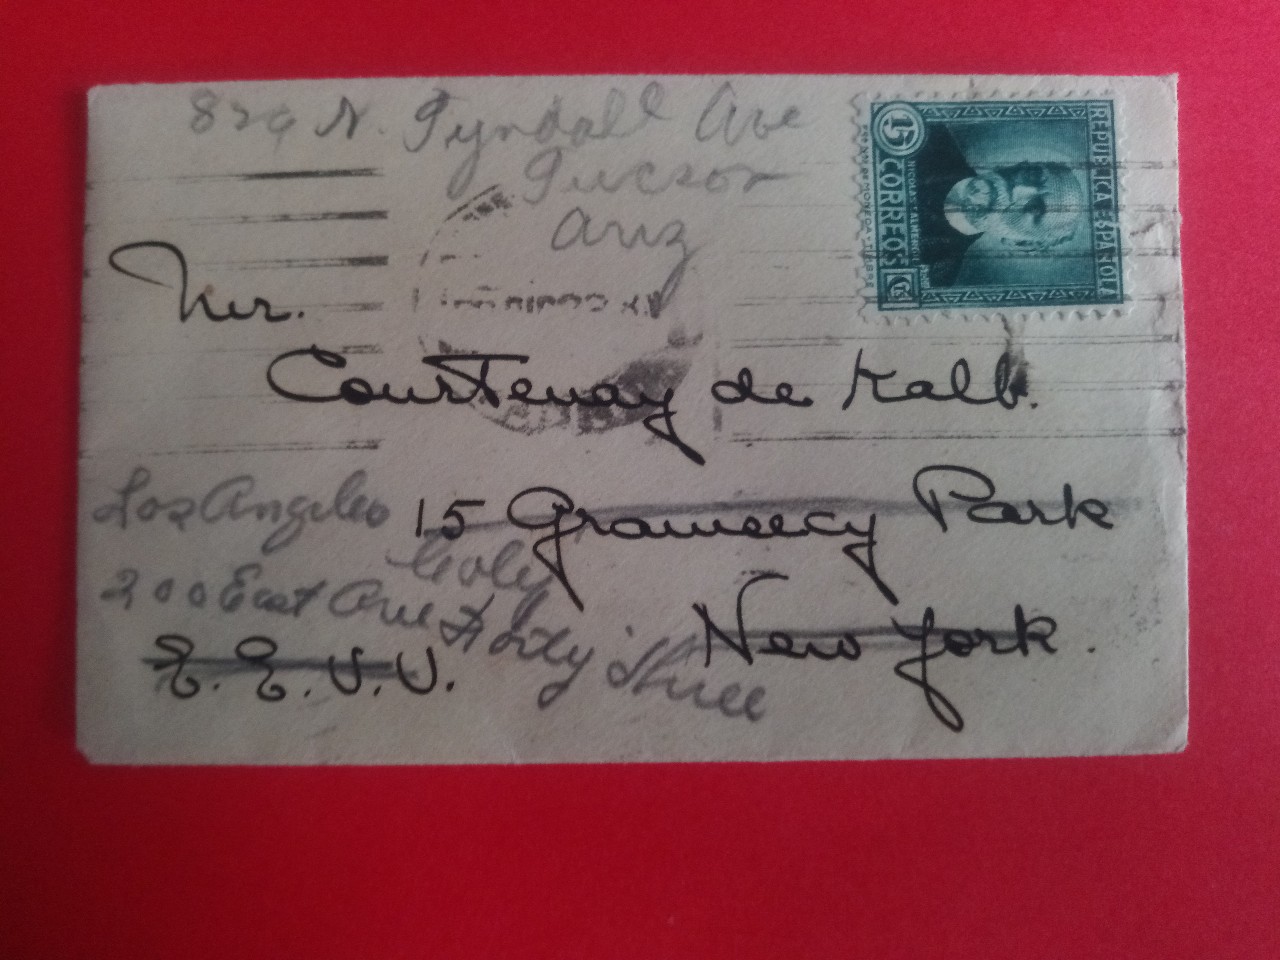 829 N. Tyndall Ave
Tucson
Ariz
REPUBLICA ESPAÑOLA
15
CORREOS
NICOLAS SALMERON
CTS
Mr.
Courtenay de Kalb.
15 Gramercy Park
New York.
E.E.U.U.
Los Angeles
200 East Ave